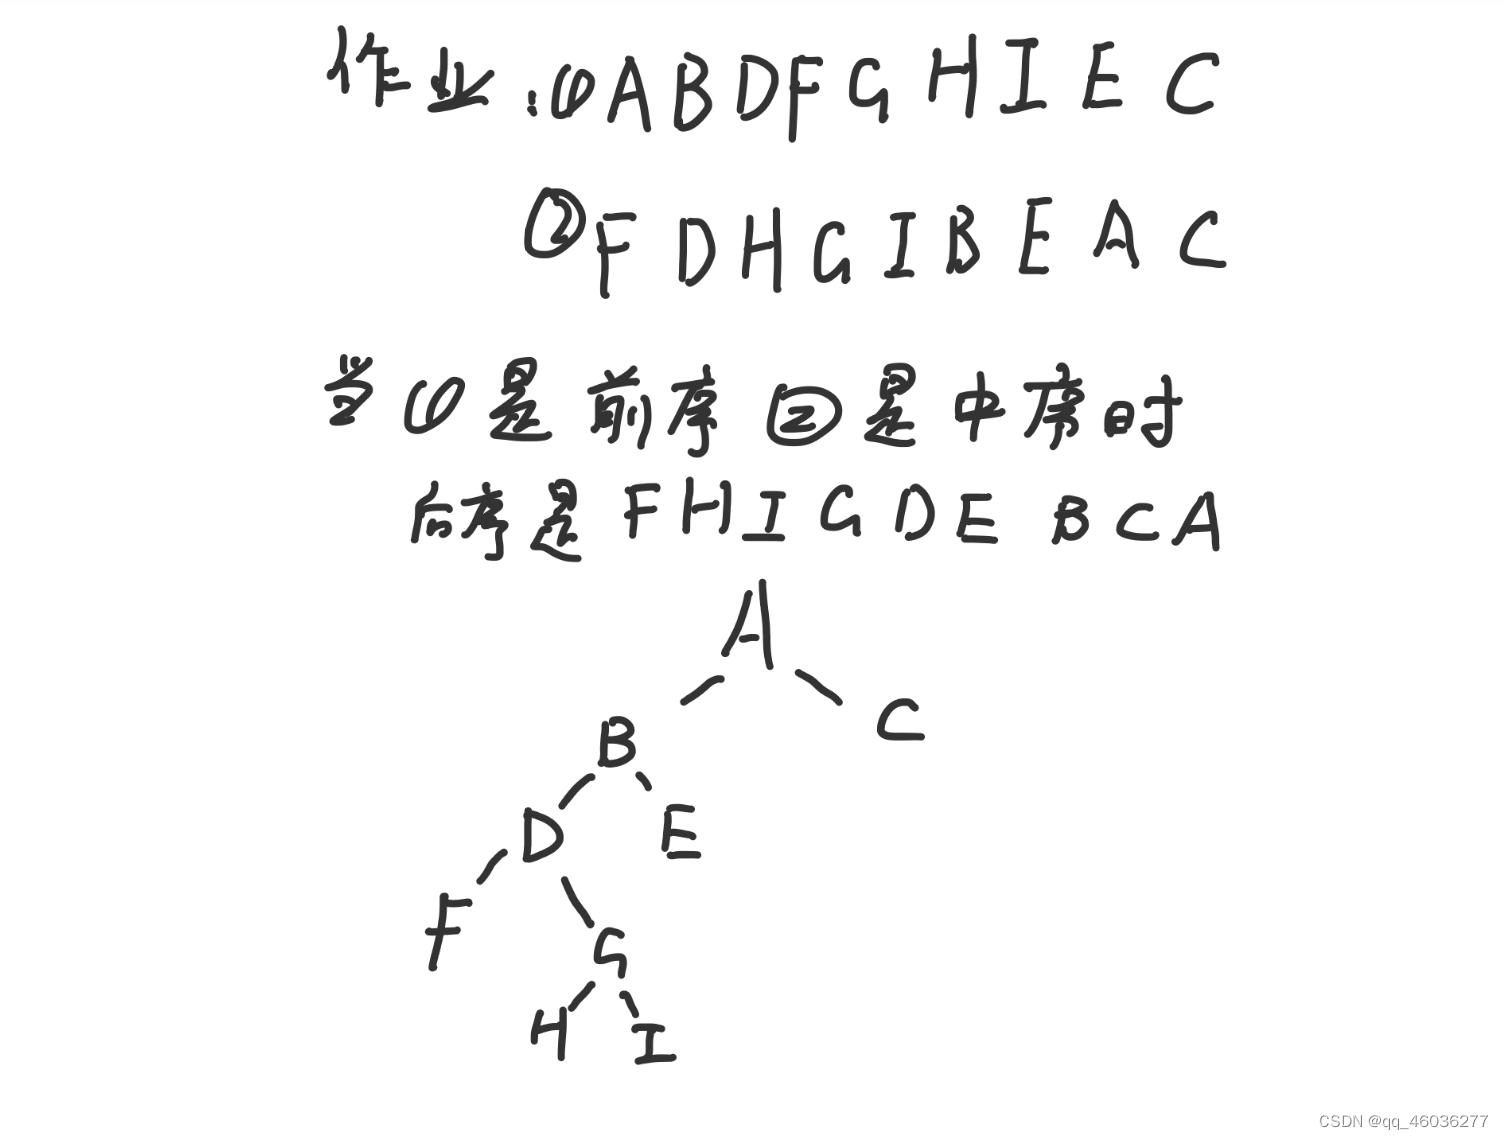 作业:①ABDFGHIEC
②FDHGIBEAC
当①是前序②是中序时
后序是FHIGDEBCA
A
B C
D E
F G
H I
CSDN @qq_46036277